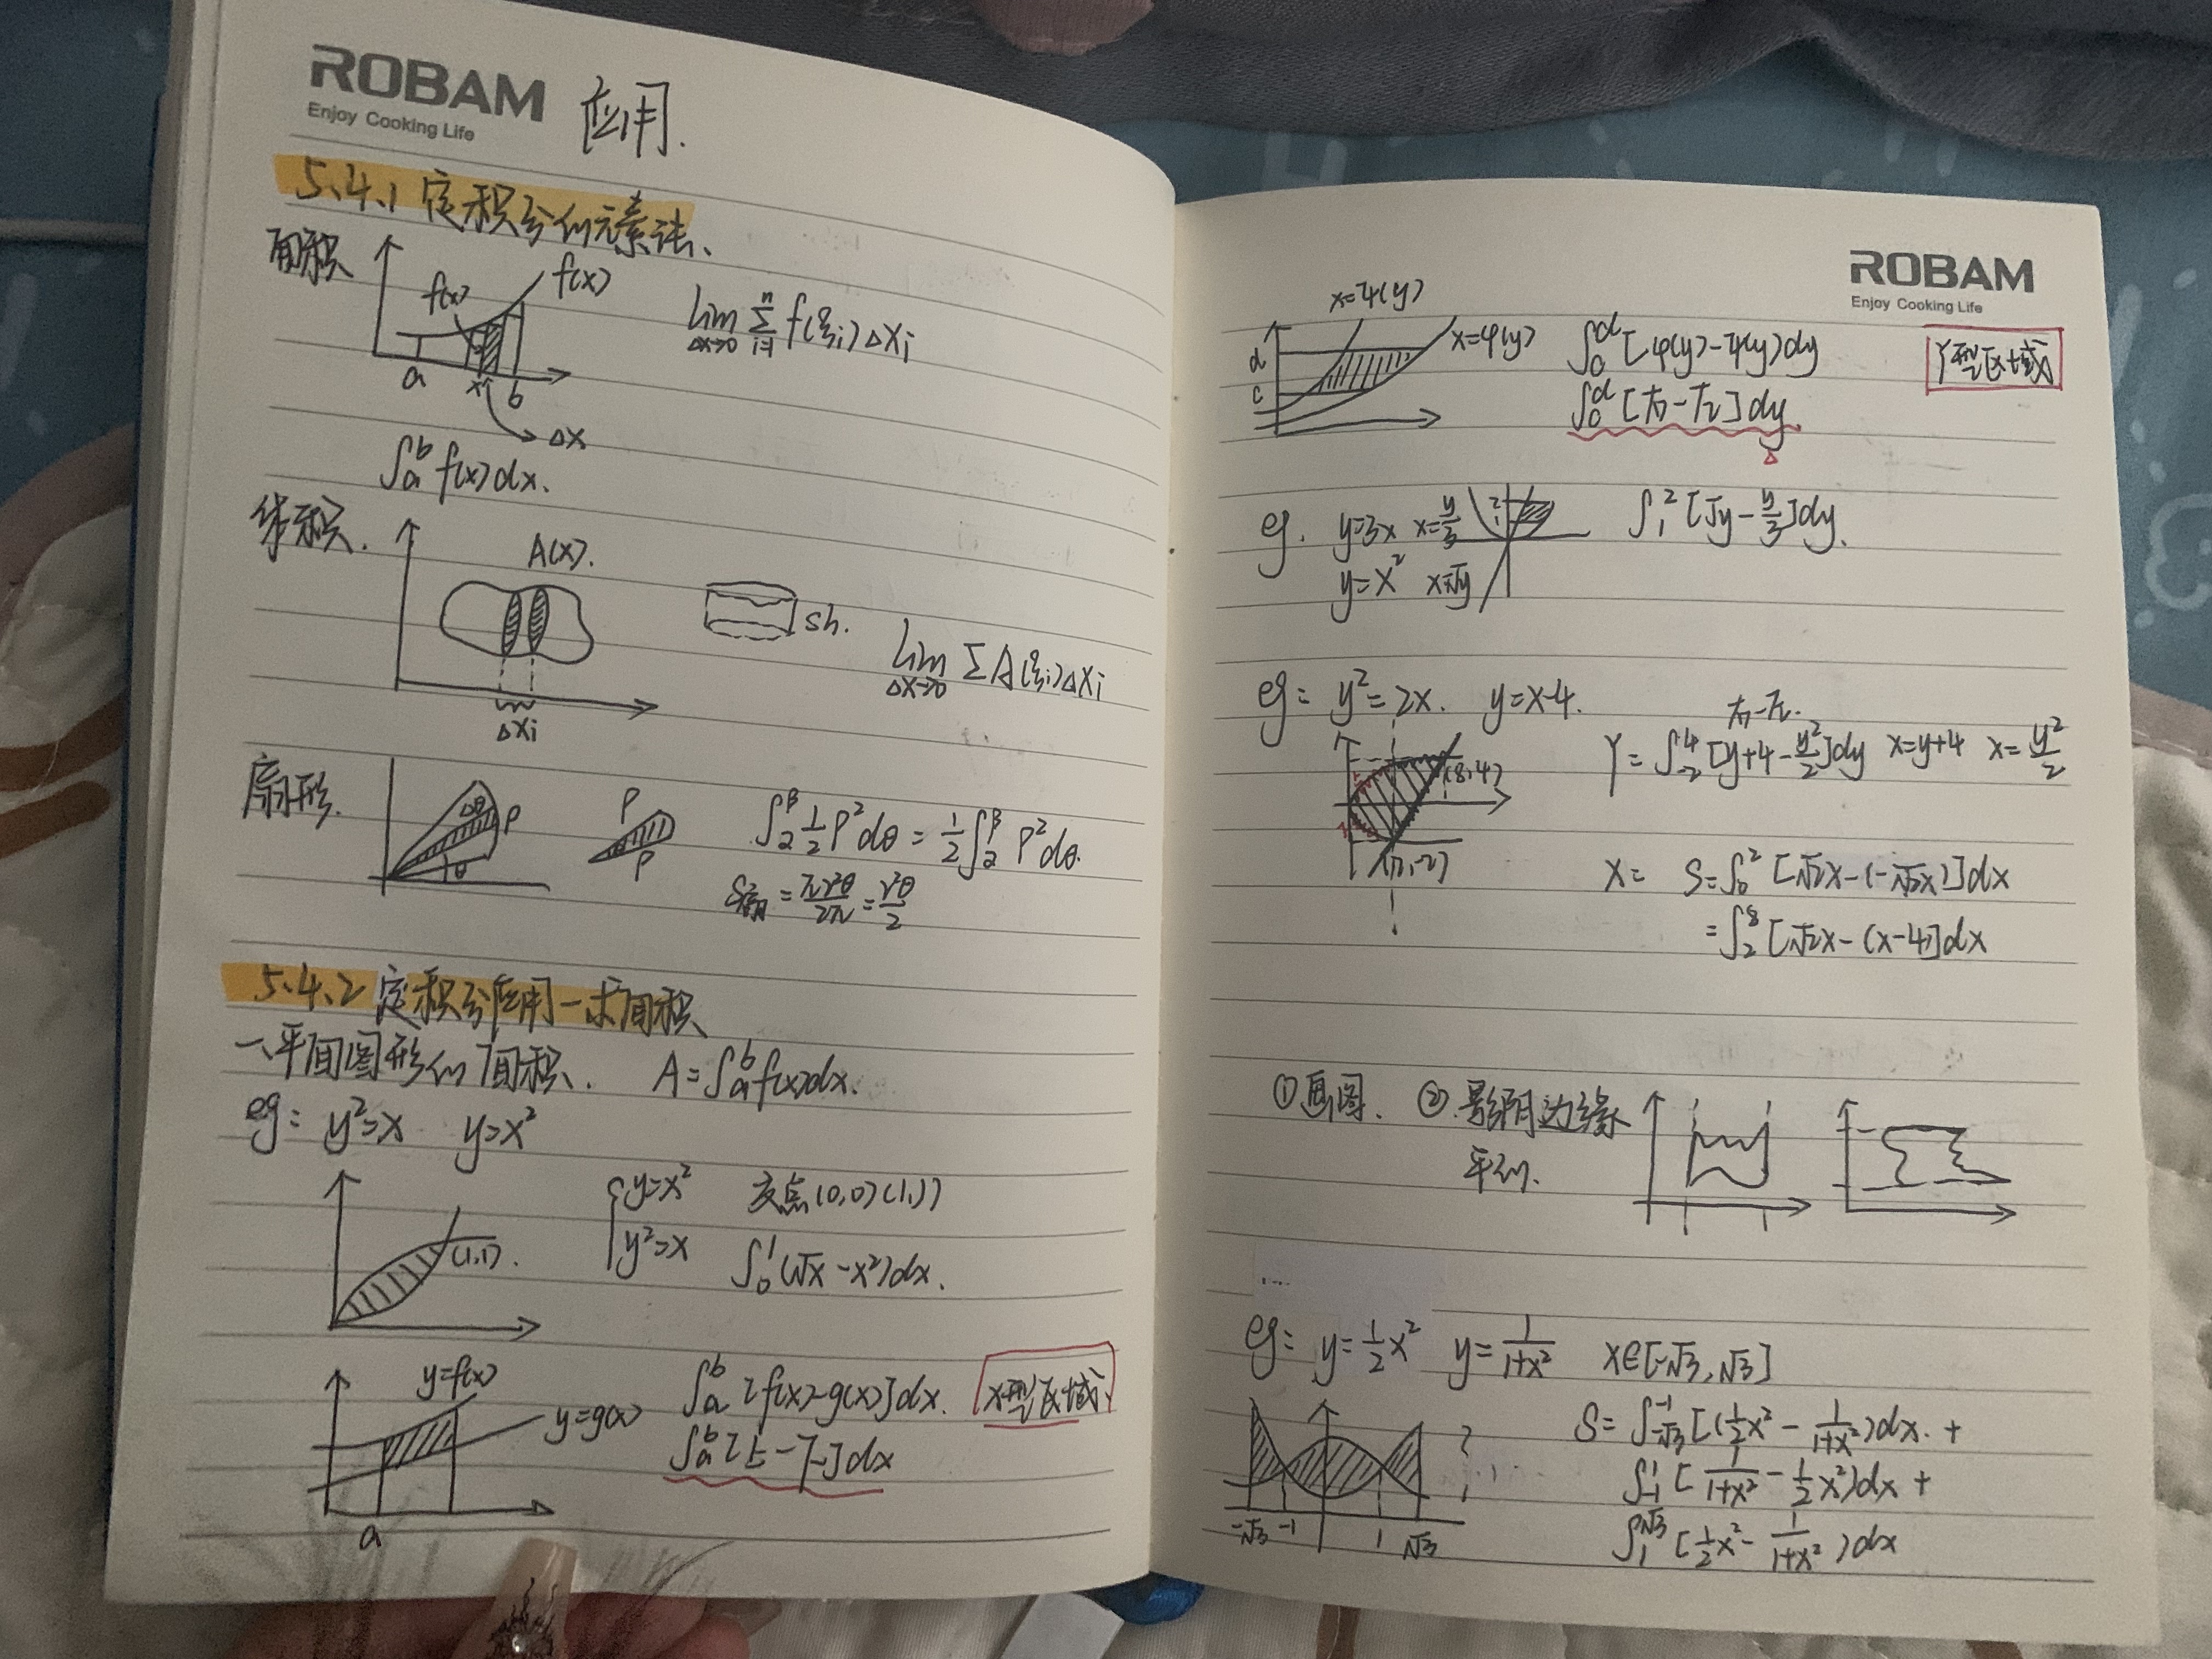 ROBAM
Enjoy Cooking Life
应用.
5.4.1 定积分的元素法、
面积
f(x)
f(x)
a x b
Δx
lim Δx→0 Σ i=1 n f(ξi)Δxi
∫a^b f(x)dx.
体积.
A(x).
Δxi
sh.
lim Δx→0 ΣA(ξi)Δxi
扇形.
Δθ ρ
θ
ρ
ρ
∫α^β ½ρ²dθ = ½∫α^β ρ²dθ.
S扇 = πr²θ/2π = r²θ/2
5.4.2 定积分应用—求面积
一、平面图形的面积. A=∫a^b f(x)dx.
eg: y²=x y=x²
(1,1).
{y=x² 交点(0,0)(1,1)
y²=x ∫0^1(√x-x²)dx.
y=f(x)
y=g(x)
a
∫a^b[f(x)-g(x)]dx. X型区域
∫a^b[上-下]dx
ROBAM
Enjoy Cooking Life
x=ψ(y)
x=φ(y)
d
c
∫c^d[φ(y)-ψ(y)]dy Y型区域
∫c^d[右-左]dy
eg. y=3x x=y/3
y=x² x=√y
2
1
∫1^2[√y-y/3]dy.
eg: y²=2x. y=x-4.
右-左.
Y=∫-2^4[y+4-y²/2]dy x=y+4 x=y²/2
(8,4)
(2,-2)
X= S=∫0^2[√2x-(-√2x)]dx
=∫2^8[√2x-(x-4)]dx
①画图. ②.影阴边缘
平行.
eg: y=½x² y=1/(1+x²) x∈[-√3,√3]
-√3 -1 1 √3
S=∫-√3^-1[(½x²-1/(1+x²))dx.+
∫-1^1[1/(1+x²)-½x²)dx+
∫1^√3[½x²-1/(1+x²))dx